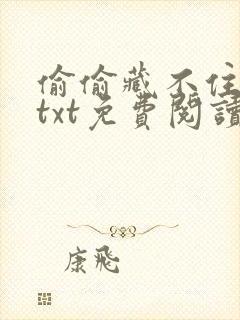 偷偷藏不住
txt免費閱讀
康飛